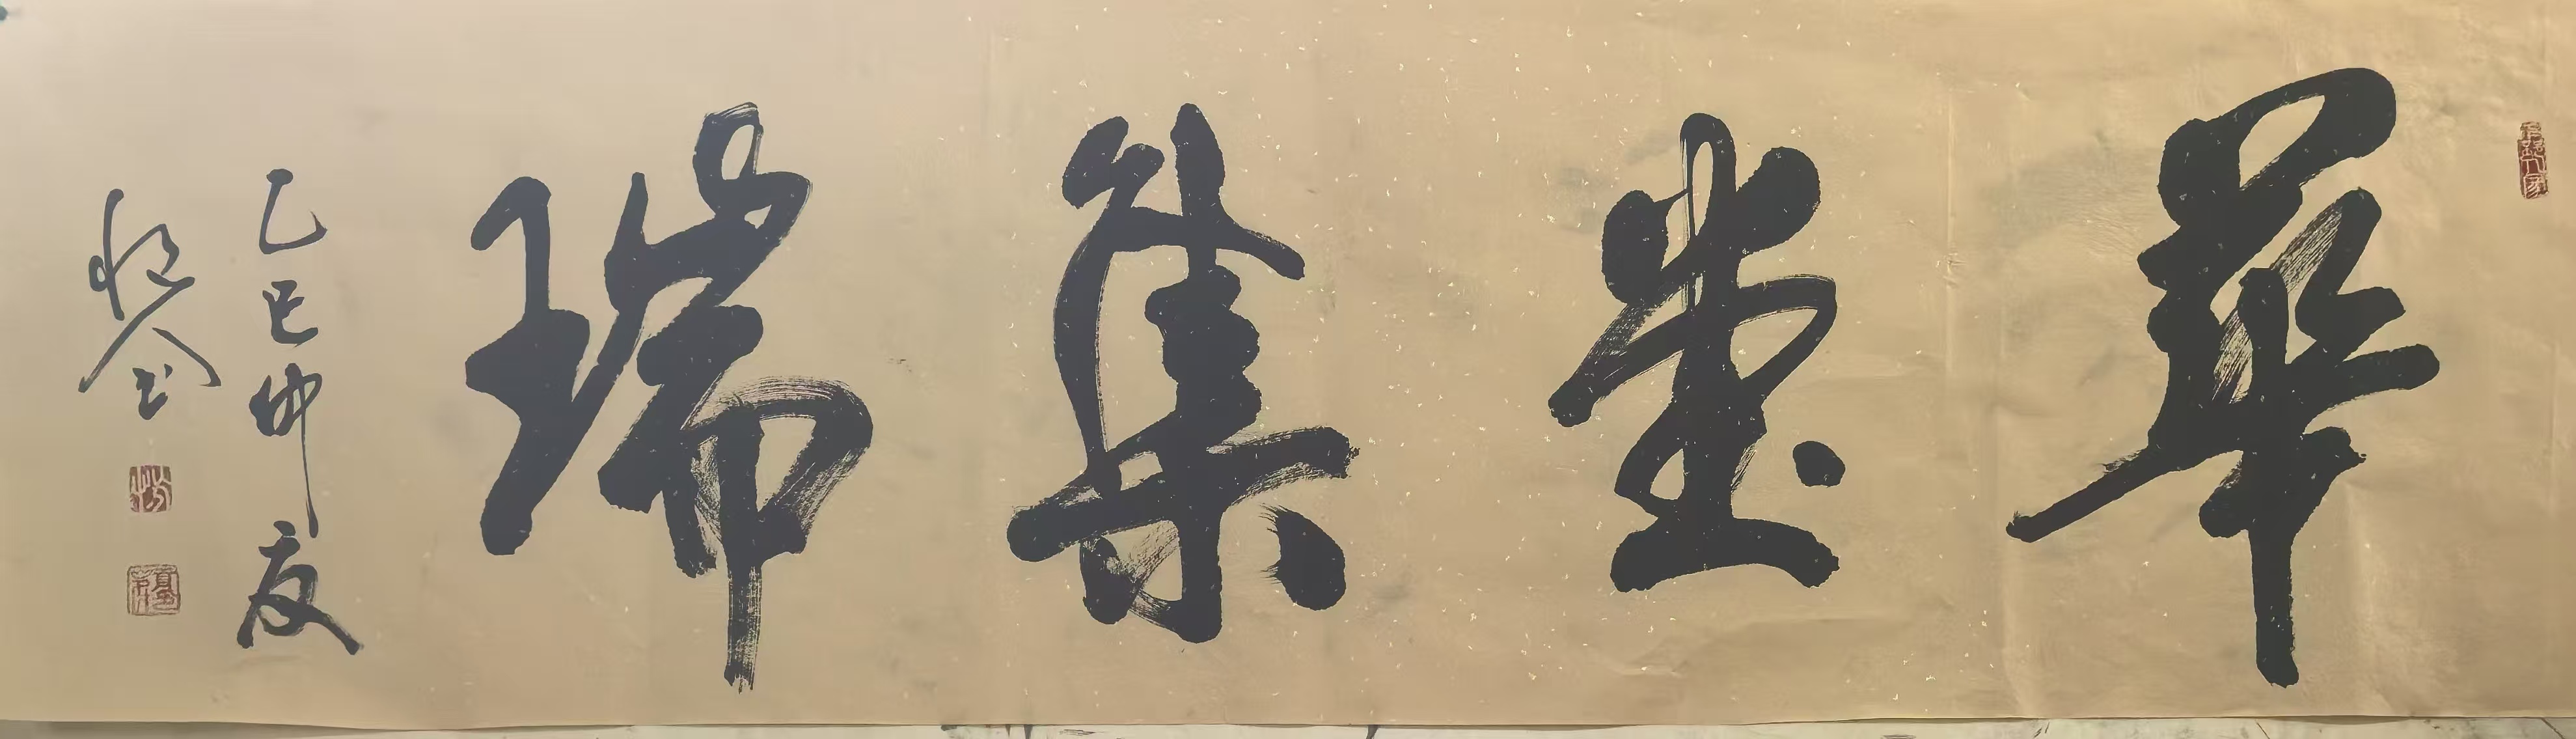 華堂集瑞
乙巳仲夏